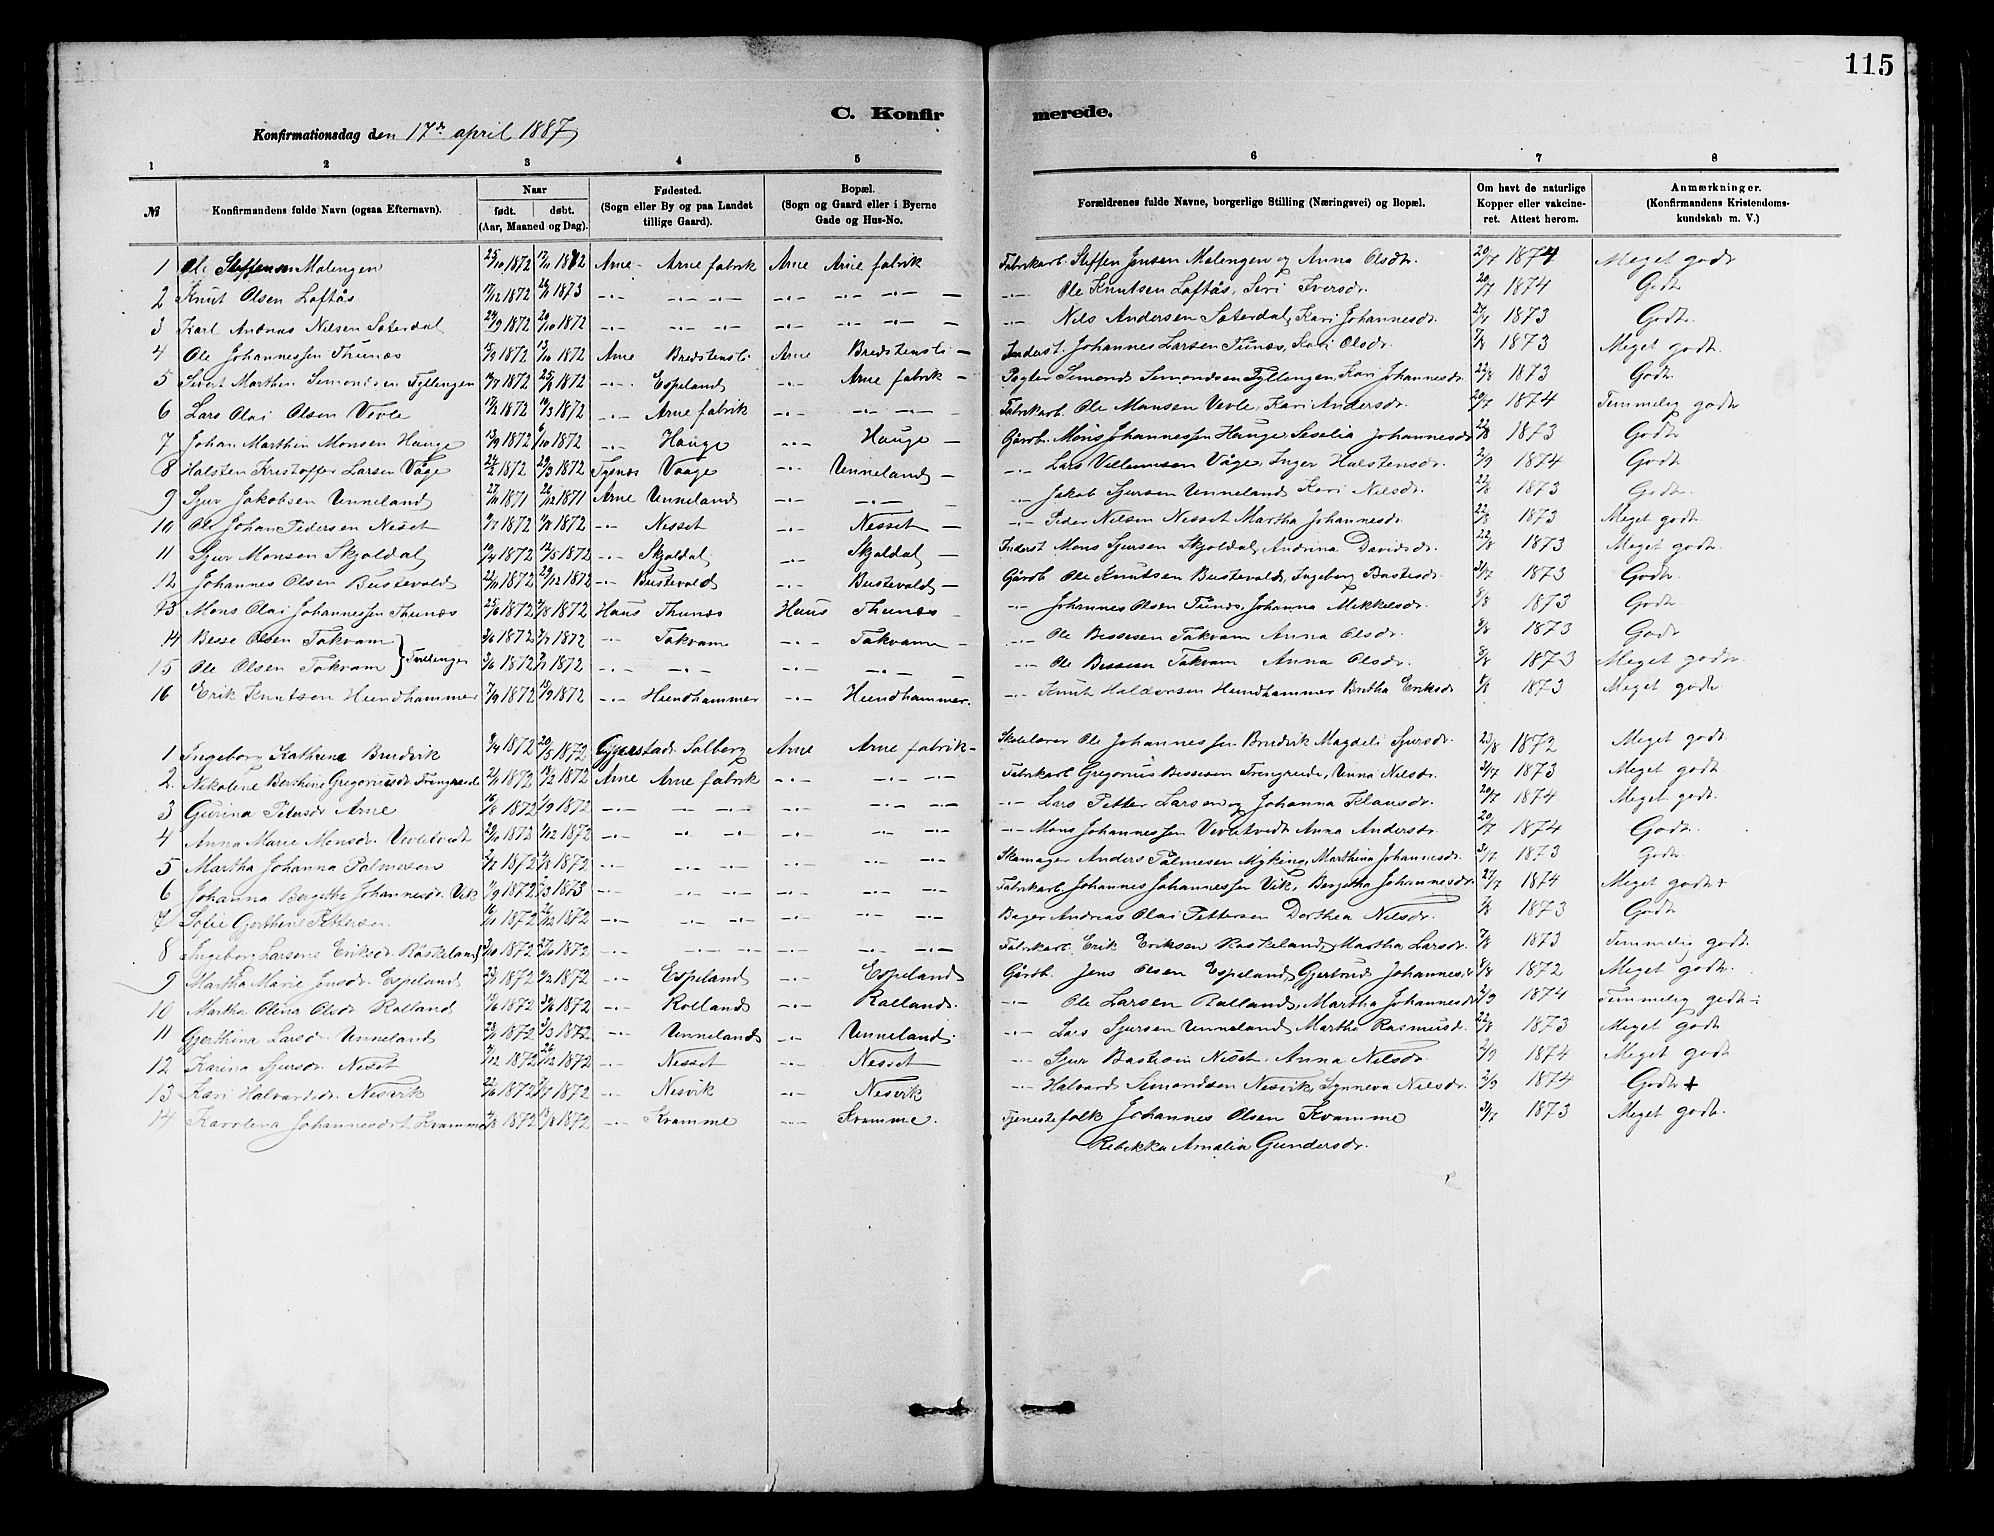 115
C. Konfirmerede.
Konfirmationsdag den 17de april 1887
1 2 3 4 5 6 7 8
№ Konfirmandens fulde Navn (ogsaa Efternavn). Naar født. døbt. (Aar, Maaned og Dag). Fødested. (Sogn eller By og paa Landet tillige Gaard). Bopæl. (Sogn og Gaard eller i Byerne Gade og Hus-No. Forældrenes fulde Navne, borgerlige Stilling (Næringsvei) og Bopæl. Om havt de naturlige Kopper eller vakcineret. Attest herom. Anmærkninger. (Konfirmandens Kristendomskundskab m. V.)
1 Ole Steffensen Malengen 25/10 1872 17/11 1872 Arne - Arne fabrik Arne Arne fabrik Fabrikarb. Steffen Jensen Malengen og Anna Olsdr. 20/7 1874 Meget godt
2 Knut Olsen Loftås 17/12 1872 1873 -.- -.- -.- -.- Ole Knutsen Loftås, Seri Iversdr. 20/7 1874 Godt
3 Karl Andreas Nilsen Saterdal 24/9 1872 20/10 1872 -.- -.- -.- -.- Nils Andersen Saterdal, Kari Johannesdr. 1873 Godt.
4 Ole Johannessen Thunæs 1872 13/10 1872 Arne Bredstensli Arne Bredstensli - Inderst. Johannes Larsen Tunæs, Kari Olsdr. 7/8 1873 Meget godt
5 Sivert Marthin Simondsen Tyllengen 1872 25/8 1872 -.- Espeland -.- Arne fabrik - Pagter Simond Simondsen Tyllengen, Kari Johannesdr. 22/8 1873 Godt.
6 Lars Olai Olsen Vevle 17/2 1872 1872 -.- Arne fabrik -.- -.- Fabrikarb. Ole Monsen Vevle, Kari Andersdr. 20/7 1874 Temmelig godt
7 Johan Marthin Monsen Hauge 13/9 1872 6/10 1872 -.- Hauge -.- Hauge - Gårdb. Mons Johannessen Hauge, Seselia Johannesdr 22/8 1873 Godt.
8 Halsten Kristoffer Larsen Våge 24/2 1872 29/3 1872 Tysnæs Vaage -.- Unneland - -.- Lars Villumsen Våge, Inger Halstensdr. 2/9 1874 Godt
9 Sjur Jakobsen Unneland 27/11 1871 26/12 1871 Arne Unneland -.- -.- -.- Jakob Sjursen Unneland Kari Nilsdr. 22/8 1873 Godt.
10 Ole Johan Pedersen Neset 1872 1872 -.- Nesset -.- Nesset - -.- Peder Nilsen Nesset Martha Johannesdr. 22/8 1873 Meget godt
11 Sjur Monsen Skjoldal 1872 12/5 1872 -.- Skjoldal -.- Skjoldal - Inderst Mons Sjursen Skjoldal, Andrina Davidsdr. 22/8 1873 Meget godt.
12 Johannes Olsen Bustevold 22/11 1872 29/12 1872 -.- Bustevold -.- Bustevold - Gårdb. Ole Knutsen Bustevold, Ingeborg Bastesdr. 31/7 1873 Godt.
13 Mons Olai Johannessen Thunæs 25/6 1872 1872 Haus Thunæs Haus Thunæs - -.- Johannes Olsen Tunæs, Johanna Mikkelsdr. 8/8 1873 Godt
14 Besse Olsen Takvam } Tvillinger 3/6 1872 3/7 1872 -.- Takvam -.- Takvam - -.- Ole Bessesen Takvam Anna Olsdr. 8/8 1873 Godt
15 Ole Olsen Takvam 3/6 1872 3/7 1872 -.- -.- -.- -.- -.- Ole Bessesen Takvam Anna Olsdr. 8/8 1873 Meget godt.
16 Erik Knutsen Hundhammer 7/9 1872 15/9 1872 -.- Hundhammer -.- Hundhammer. -.- Knut Haldorsen Hundhammer Britha Eriksdr. 8/8 1873 Meget godt.
1 Ingeborg Kathrina Brudvik 8/4 1872 20/5 1872 Gjerstad Solberg Arne Arne fabrik - Skolelærer Ole Johannessen Brudvik Magdeli Sjursdr. 23/8 1872 Meget godt
2. Nikoline Berthine Gregoriusdr. Trengereide 1872 18/2 1872 Arne Arne fabrik -.- -.- Fabrikarb. Gregorius Bessesen Trengreide, Unna Nilsdr. 31/7 1873 Meget godt.
3 Gurina Petersdr Arne 16/8 1872 1/9 1872 -.- -.- -.- -.- Lars Petter Larsen og Johanna Klausdr. 20/7 1874 Meget godt
4 Anna Marie Monsdr. Vevletvedt 29/10 1872 1/12 1872 -.- -.- -.- -.- Mons Johannessen Vevletvedt Anna Andersdr. 20/7 1874 Godt.
5 Martha Johanna Palmesen 1872 1872 -.- -.- -.- -.- Skomager Anders Palmesen Myking, Marthina Johannesdr. 31/7 1873 Godt
6 Johanna Bergitha Johannesdr. Vik 1872 1873 -.- -.- -.- -.- Fabrikarb. Johannes Johannessen Vik, Bergitha Johannesdr. 27/7 1874 Meget godt +
7 Sofie Gjerthine Pettersen 16/11 1872 26/12 1872 -.- -.- -.- -.- Bager Andreas Olai Pettersen Dorthea Nilsdr. 7/8 1873 Godt
8 Ingeborg Larsine Eriksdr. Råskeland 1872 27/10 1872 -.- -.- -.- -.- Fabrikarb. Erik Eriksen Raskeland, Martha Larsdr. 7/8 1873 Temmelig godt.
9 Martha Marie Jensdr. Espeland 23/1 1872 1872 -.- Espeland -.- Espeland Gårdb. Jens Olsen Espeland, Gjertrud Johannesdr 8/8 1872 Meget godt.
10 Martha Olina Olsdr Rolland 1872 1872 -.- Rolland -.- Rolland. -.- Ole Larsen Rolland, Martha Johannesdr 2/9 1874 Temmelig godt -
11 Gjerthina Larsd. Unneland 23/1 1872 3/3 1872 -.- Unneland -.- Unneland. -.- Lars Sjursen Unneland, Martha Rasmusdr. 22/8 1873 Meget godt
12 Karina Sjursdr. Neset 1872 26/12 1872 -.- Nesset -.- Nesset -.- Sjur Bastesen Neset. Anna Nilsdr. 2/9 1874 Meget godt
13 Kari Halvardsdr. Nesvik 1872 1872 -.- Nesvik -.- Nesvik -.- Halvard Simondsen Nesvik, Synneva Nilsdr. 2/9 1874 Godt +
14 Karolina Johannesdst Kvamme 1872 1872 -.- Kvamme -.- Kvamme. Tjenestefolk Johannes Olsen Kvamme 31/7 1873 Meget godt.
Rebekka Amalia Gundersdr.